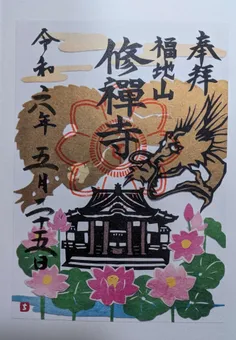 奉拝
福地山
修禪寺
令和六年五月二五日